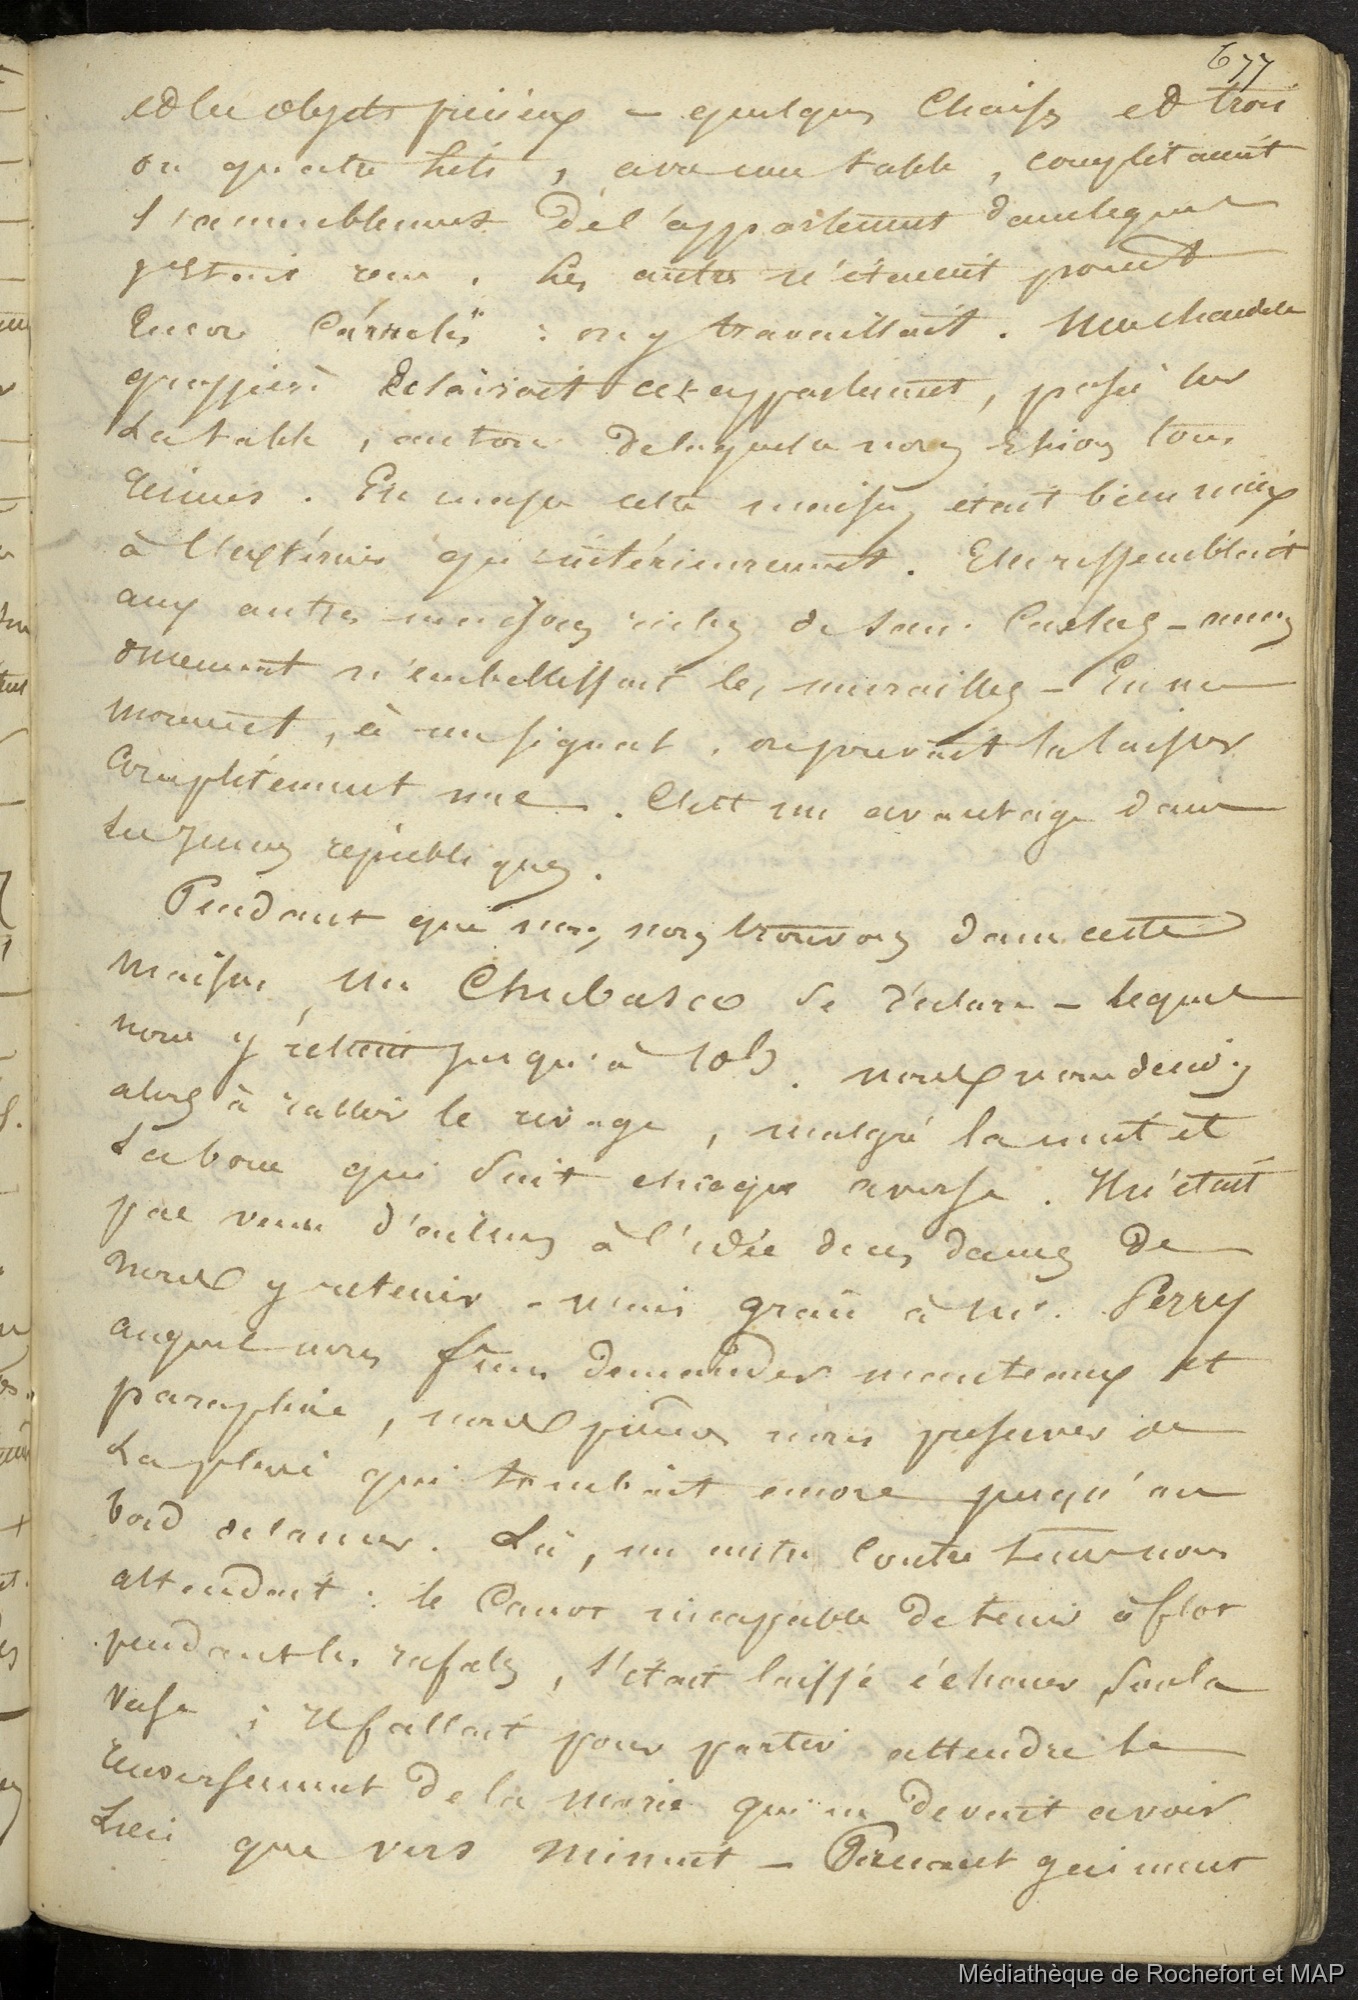 677
et les objets précieux – quelques chaises et trois
ou quatre lits, avec une table, complétaient
l'ameublement de l'appartement dans lequel
j'étais reçu. Les autres n'étaient point
encore carrelés : on y travaillait. Une chandelle
grossière éclairait cet appartement, posée sur
la table, autour de laquelle nous étions tous
réunis. En masse cette maison était bien mieux
à l'extérieur qu'intérieurement. Elle ressemblait
aux autres maisons riches de San Carlos – aucun
ornement n'embellissait les murailles – En un
moment, à un signal, on pouvait la laisser
complètement nue. C'est un avantage dans
les jeunes républiques.
Pendant que nous nous trouvons dans cette
maison, un Chubasco se déclare – lequel
nous y retient jusqu'à 10h. nous nous décidons
alors à rallier le rivage, malgré la nuit et
la boue qui suit chaque averse. Il n'était
pas venu d'ailleurs à l'idée de ces dames de
nous y retenir – mais grâce à Mr. Perry
auquel nous fîmes demander manteaux et
parapluie, nous pûmes nous préserver de
la pluie qui tombait encore jusqu'au
bord de la mer. Là, un autre contretems nous
attendait : le canot incapable de tenir à flot
pendant les rafales, s'était laissé échouer sur la
vase ; il fallait pour partir attendre le
renversement de la marée qui ne devait avoir
lieu que vers minuit –
Médiathèque de Rochefort et MAP